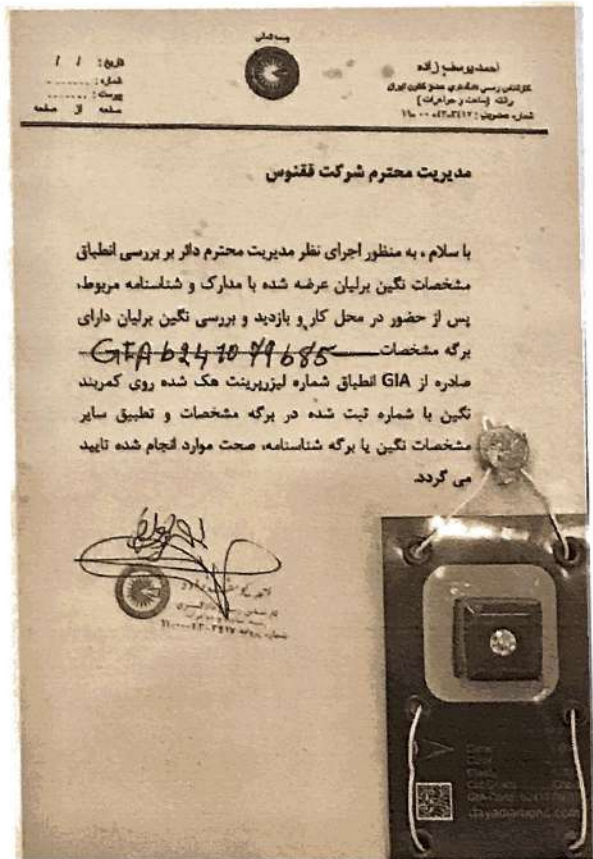 بسمه تعالی
احمد یوسف زاده
کارشناس رسمی دادگستری عضو کانون ایران
رشته (ساعت و جواهرات)
تاریخ: / /
شماره:
پیوست:
صفحه از صفحه
مدیریت محترم شرکت ققنوس
با سلام ، به منظور اجرای نظر مدیریت محترم دائر بر بررسی انطباق
مشخصات نگین برلیان عرضه شده با مدارک و شناسنامه مربوط،
پس از حضور در محل کار و بازدید و بررسی نگین برلیان دارای
برگه مشخصات GIA 6247079685
صادره از GIA انطباق شماره لیزرپرینت هک شده روی کمربند
نگین با شماره ثبت شده در برگه مشخصات و تطبیق سایر
مشخصات نگین با برگه شناسنامه، صحت موارد انجام شده تایید
می گردد.
dayadiamond.com